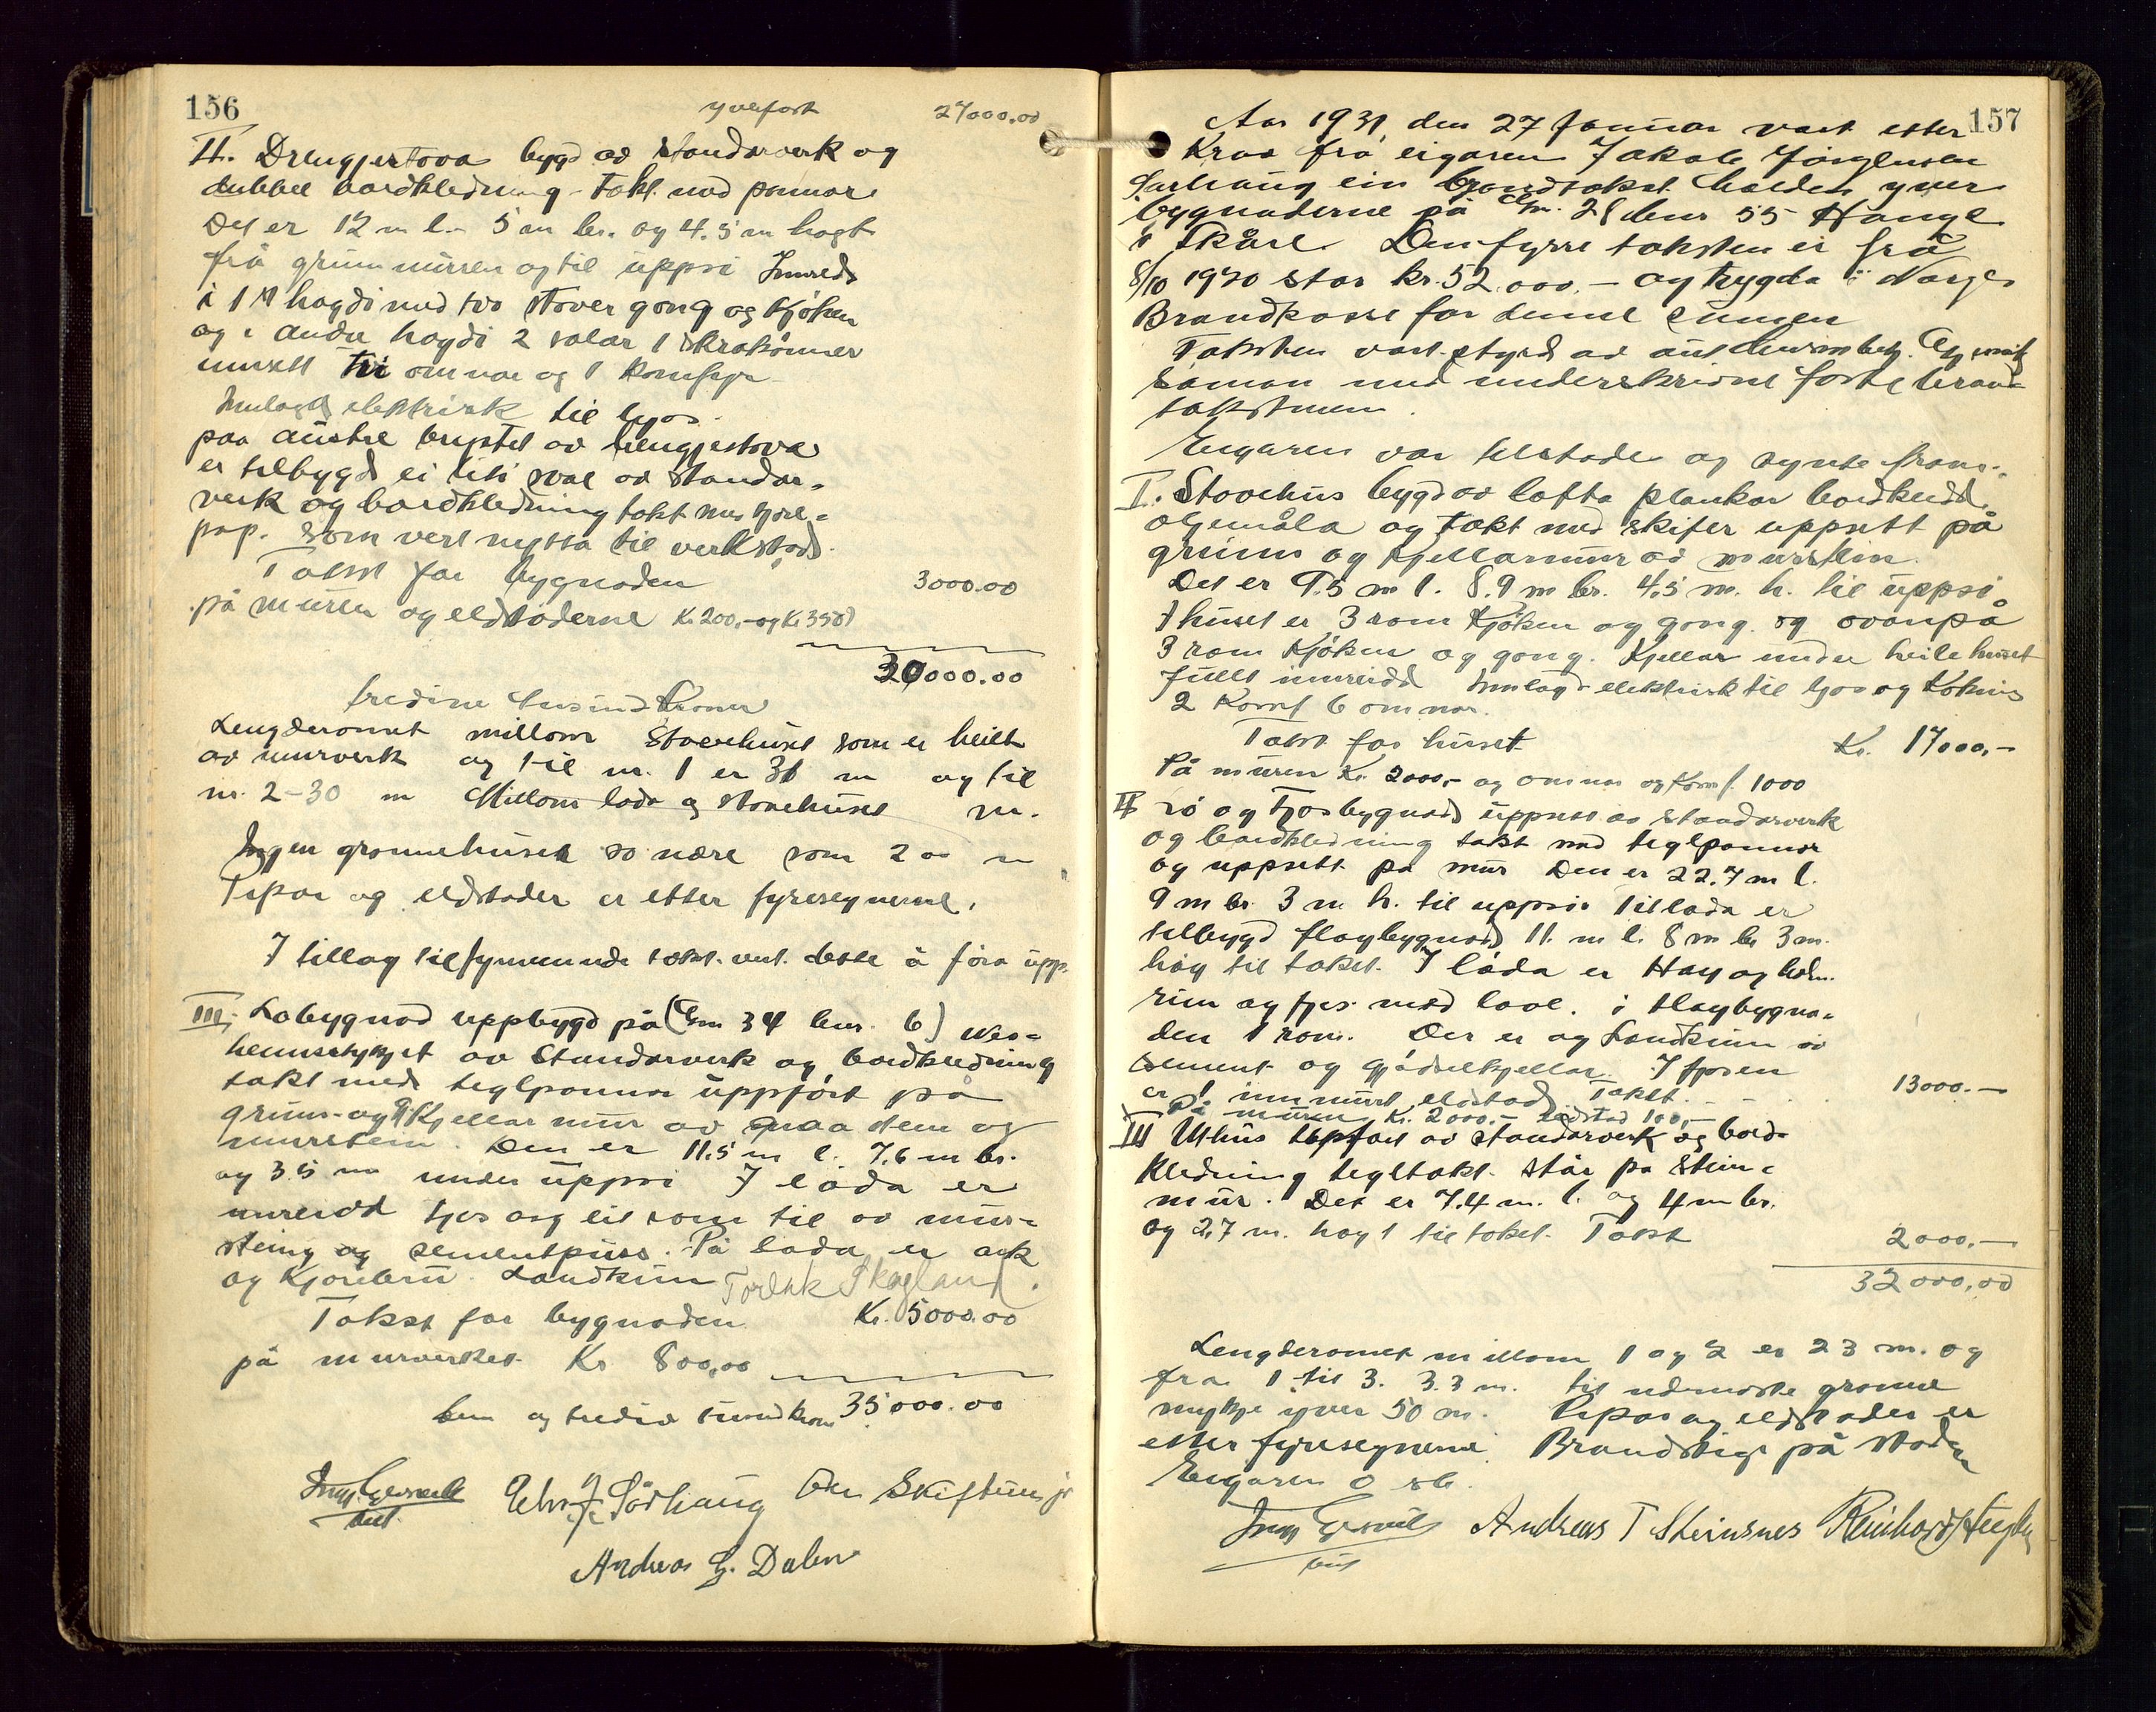 156
yverført 27000.00
II. Drengjestova bygd av standarverk og
dubbel bordkledning. Takt med pannar
Det er 12 m l. 5 m br. og 4.5 m høgt
frå grunnmuren og til uppsi Innreds
i 1ste høgdi med tvo stover gong og kjøken
og i andre høgdi 2 salar 1 skrakåmmer
innsett tri omnar og 1 komfyr
Innlagd elektrisk til ljos.
paa austre langsida av drengjestova
er tilbygd ei liti sval av standar-
verk og bordkledning takt med tjøre-
pap. Som vert nytta til verkstad.
Takst for bygnaden 3000.00
på muren og eldstaderne Kr 200,- og Kr 350)
30000.00
tredive tusund kroner
Lengderomet millom Stovehuset som er heilt
av murverk og til nr. 1 er 31 m og til
nr. 2 - 30 m Millom lada og stovehuset m.
Ingen grannehuset so nære som 200 m
Pipor og eldstader er etter fyresegnerne.
I tillag til fyrenemnde takst vert dette å föra upp.
III. Løbygnad uppbygd på (Gm 34 bnr. 6)
av Standarverk og bordkledning
takt med teglpannor uppført på
grunn- og kjellarmur av graastein og
murstein. Den er 11.5 m l. 7.6 m br.
og 3.5 m under uppsi I løda er
innreidd fjos og eit rom til av mur-
steing og sementpuss. På løda er ark
og kjørebru. Landkum Torlak Skogland.
Takst for bygnaden Kr. 5000.00
på murverket Kr 800.00
fem og tredive tusund kroner 35000.00
J. Sörhaug Skiftun jr
Andreas G. Dalen
157
Aar 1931, den 27 Januar vart etter
Krav frå eigaren Jakob Jørgensen
Sørhaug ein brandtakst halden yver
bygnaderne på Gm. 28 bnr 55 Hauge
i Skåre. Den fyrre taksten er frå
8/10 1920 stor kr. 52.000.- og trygda i Norges
Brandkasse for denne summen
Taksten vart styrd av
saman med underskrivne faste brand-
takstmenn.
Eigaren var tilstades og synte fram:
I. Stovehus bygd av lafta plankar bordkledd,
oljemåla og takt med skifer uppsett på
grunn og kjellarmur av murstein.
Det er 9.5 m l. 8.9 m br. 4.5 m. h. til uppsi.
I huset er 3 rom kjøken og gong. og ovanpå
3 rom kjøken og gong. Kjellar under heile huset
fullt innreidd Innlagd elektrisk til ljos og kokning
2 Komf 6 omnar.
Takst for huset Kr. 17000,-
På muren Kr. 2000,- og omnar og Komf. 1000
II Lö og Fjosbygnad uppsett av standarverk
og bordkledning takt med teglpannor
og uppsett på mur Den er 22.7 m l.
9 m br. 3 m h. til uppsi. Til løda er
tilbygd fløybygnad 11. m l. 8 m br 3 m.
høg til taket. I löda er Høy og halm-
rum og fjos med låve. i fløybygna-
den 1 rom. Der er og Landkum av
sement og gjødselkjellar. I fjosen
er 1 innmurt eldstad. Takst. - - - 13000.-
På muren Kr. 2000.- eldstad 100,-
III Uthus uppført av standarverk og bord-
kledning tegltakt. står på stein-
mur. Det er 7.4 m. l. og 4 m br.
og 2.7 m. høgt til taket. Takst 2000.-
32000.00
Lengderomet millom 1 og 2 er 23 m. og
fra 1 til 3. 3.3 m. til næmaste granne
mykje yver 50 m. Pipor og eldstader er
etter fyresegnerne. Brandstige på staden
Eigaren
Andreas T Steinsnes Reinhard